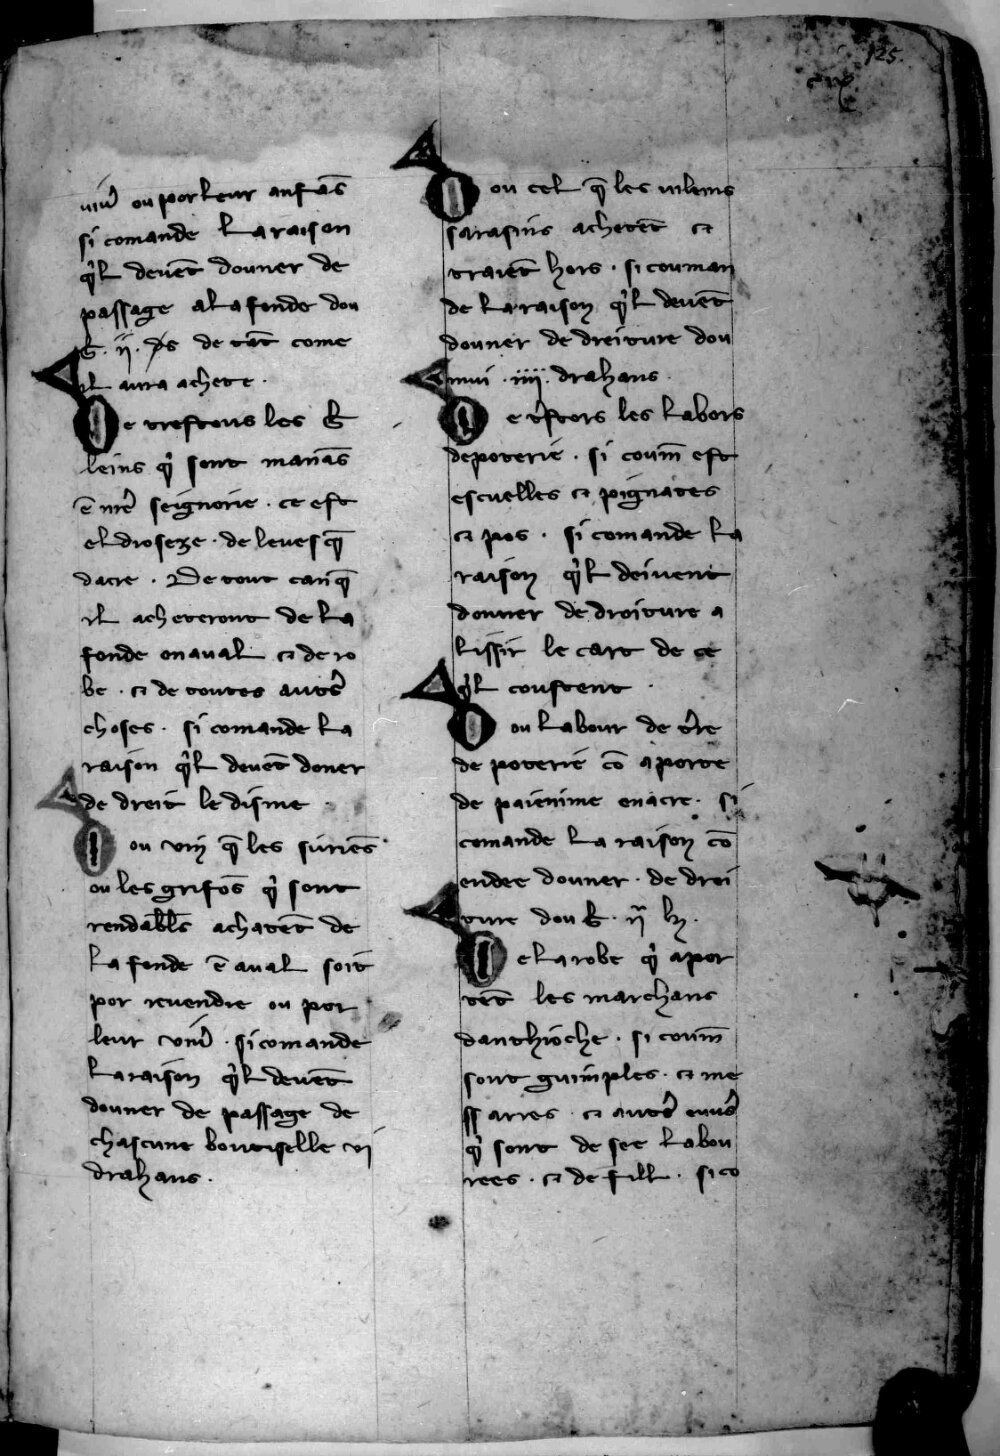 125
uiure ou por leur anfās
si comande la raison
q̓l deuēt douner de
passage a la fonde dou
.ij. de tāt come
il aura achete .
De trestous les
leins q̓ sont manās
ē nrē seignorie . ce est
el dioseze . de leuesq̄
dacre . De tout canq̄
il acheteront de la
fonde en aual ⁊ de ro
be . ⁊ de toutes autr̄s
choses . si comande la
raison q̓l deuēt doner
de dreit le disme .
Dou vin q̄ les suriēs
ou les grifōs q̓ sont
rendabl̄s achatēt de
la fonde ē aual soit
por reuendre ou por
leur viure . si comande
la raison q̓l deuēt
douner de passage de
chascune bouteselle vj
drahans .
Dou cel q̄ les vileins
sarasins achetēt ⁊
traiēt hors . si couman
de la raison q̓l deuēt
douner de dreiture dou
mui . iiij . drahans .
De tr̄stors les labors
de poterie . si coum̄ est
escuelles ⁊ pignates
⁊ pos . si comande la
raison q̓l deivent
douner de droiture a
lissir le cart de ce
q̓l coustent .
Dou labour de tr̄re
de poterie cō aporte
de paienime en acre . si
comande la raison cō
endee douner . de drei
ture dou
De la robe q̓ apor
tēt les marchans
danthioche . si coum̄
sont guimples . ⁊ me
ssarres . ⁊ autr̄s euur̄s
q̓ sont de see labou
rees . ⁊ de fill . si co